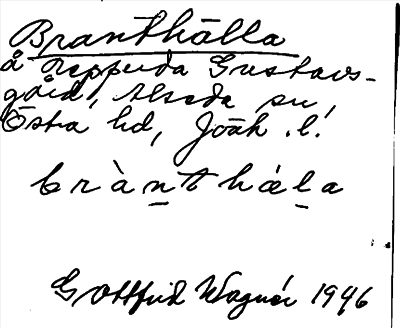 Branthälla
å Repperda Gustavs-
gård, Alseda sn,
Östra hd, Jönk. l.
bràn̲t hál̲a
Gottfrid Wagnér 1946